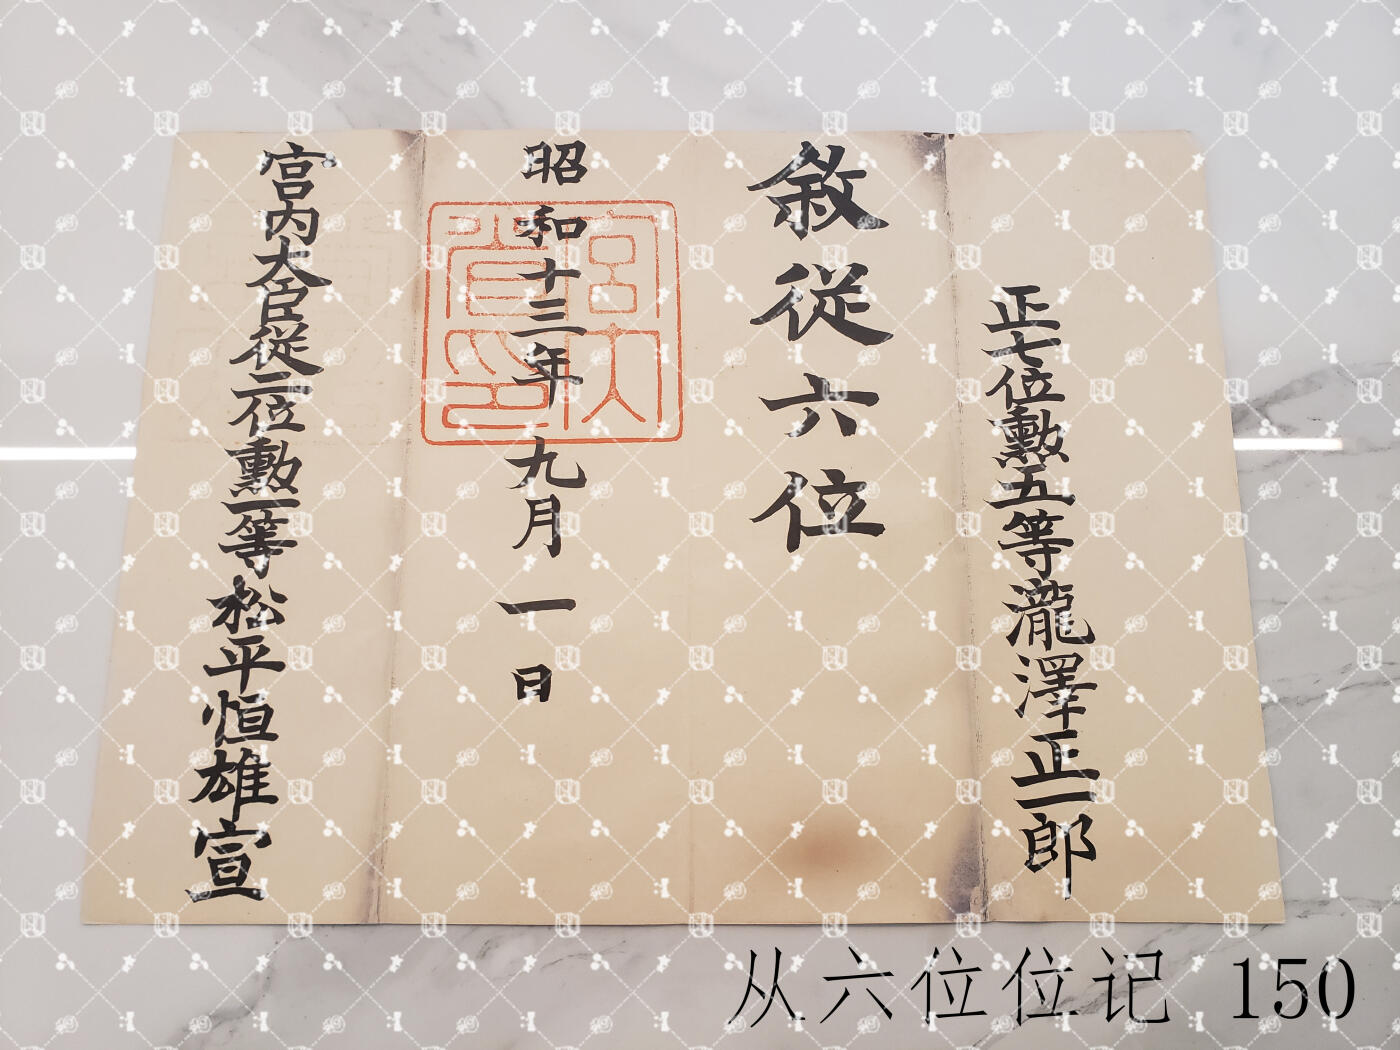 正七位勲五等瀧澤正一郎
敘從六位
昭和十三年九月一日
宮内省印
宮内大臣從二位勲一等松平恒雄宣
从六位位记 150